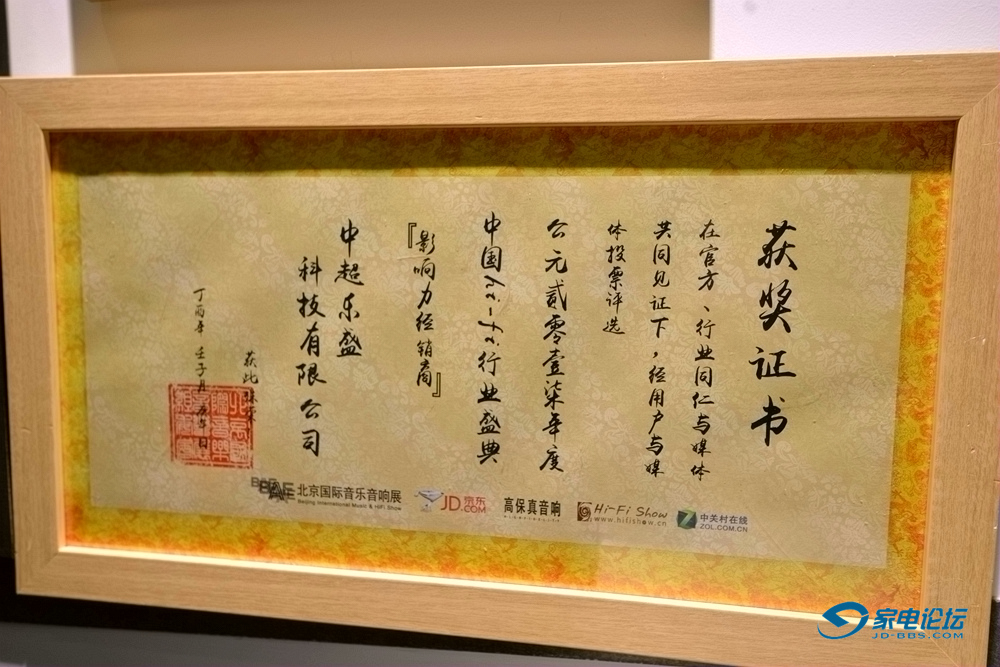 获奖证书
在官方、行业同仁与媒体
共同见证下，经用户与媒
体投票评选
公元贰零壹柒年度
中国hi-fi行业盛典
『影响力经销商』
中超乐盛
科技有限公司
获此殊荣
丁酉年 壬子月
北京国际音乐音响展
Beijing International Music & HiFi Show
JD 京东
.COM
高保真音响
Hi-Fi Show
www.hifishow.cn
中关村在线
ZOL.COM.CN
家电论坛
JD-BBS.COM